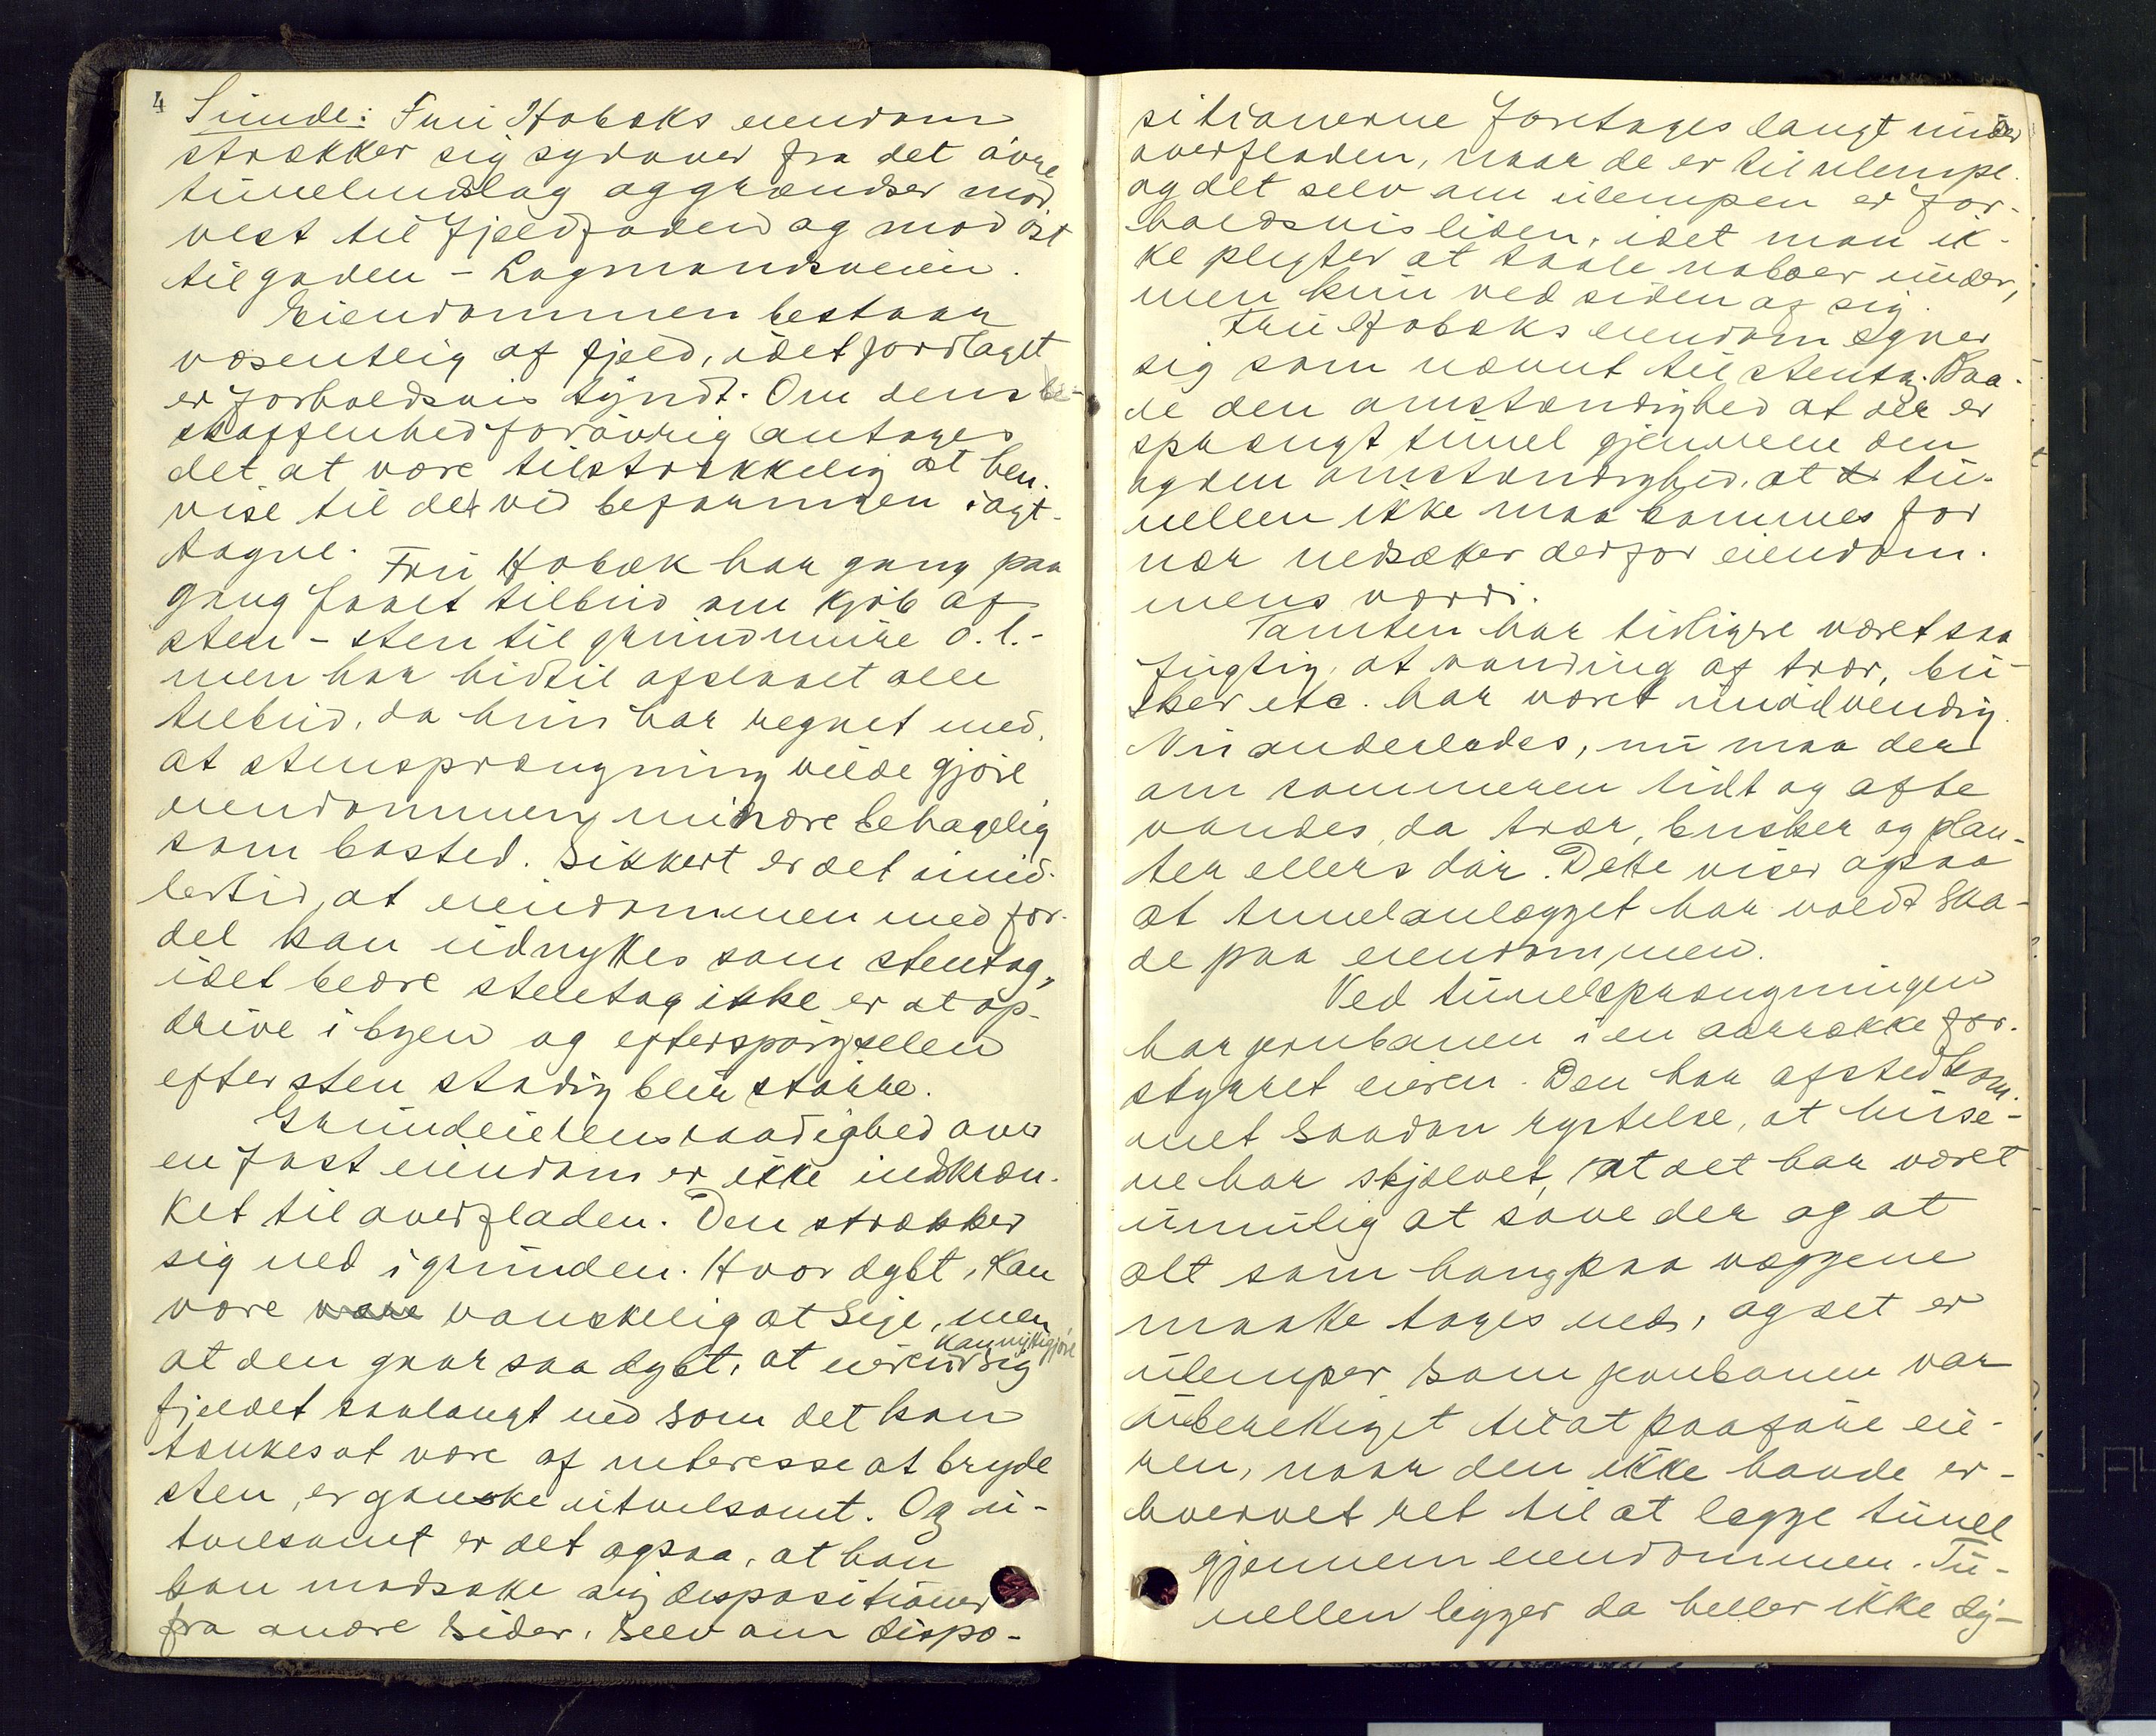 4
Sunde: Fru Hobæks eiendom
strækker sig sydover fra det øvre
tunelindslag og grændser mod
vest til fjeldfoden og mod øst
til gaden - Lagmandsveien.
Eiendommen bestaar
væsentlig af fjeld, idet jordlaget
er forholdsvis tyndt. Om dens be-
skaffenhed forøvrig antages
det at være tilstrækkelig at hen-
vise til det ved befaringen iagt-
tagne.
Fru Hobæk har gang paa
gang faaet tilbud om kjøb af
sten - sten til grundmure o.l.-
men har hidtil afslaaet alle
tilbud, da hun har regnet med,
at stensprængning vilde gjøre
eiendommen mindre behagelig
som bosted. Sikkert er det imid-
lertid, at eiendommen med for-
del kan udnyttes som stentag,
idet bedre stentag ikke er at op-
drive i byen og efterspørgselen
efter sten stadig blir større.
Grundeierens raadighed over
en fast eiendom er ikke indskræn-
ket til overfladen. Den strækker
sig ned i grunden. Hvor dybt, kan
være være vanskelig at sige, men
kan nyttigjøre
at den gaar saa dybt, at eieren sig
fjeldet saalangt ned som det kan
tænkes at være af interesse at bryde
sten, er ganske utvilsomt. Og u-
tvilsomt er det ogsaa, at han
kan modsætte sig dispositioner
fra andre sider, selv om dispo-
sitionerne foretages langt under
overfladen, naar de er til ulempe
og det selv om ulempen er for-
holdsvis liden, idet man ik-
ke pligter at taale naboer under,
men kun ved siden af sig.
Fru Hobæks eiendom egner
sig som nævnt til stentag. Baa-
de den omstændighed at der er
sprængt tunel gjennem den
og den omstændighed, at tu-
nellen ikke maa kommes for
nær nedsætter derfor eiendom-
mens værdi.
Tomten har tidligere været saa
fugtig, at vanding af trær, bu-
sker etc. har været unødvendig.
Nu anderledes, nu maa der
om sommeren tidt og ofte
vandes, da trær, busker og plan-
ter ellers dør. Dette viser ogsaa
at tunelanlægget har voldt ska-
de paa eiendommen.
Ved tunelsprængningen
har jernbanen i en aarrække for-
styrret eieren. Den har afstedkom-
met saadan rystelse, at huse-
ne har skjælvet, at det har været
umulig at sove der og at
alt som hang paa væggene
maatte tages ned, og det er
ulemper som jernbanen var
uberettiget til at paaføre eie-
ren, naar den ikke havde er-
hvervet ret til at lægge tunel
gjennem eiendommen. Tu-
nellen ligger da heller ikke dy-